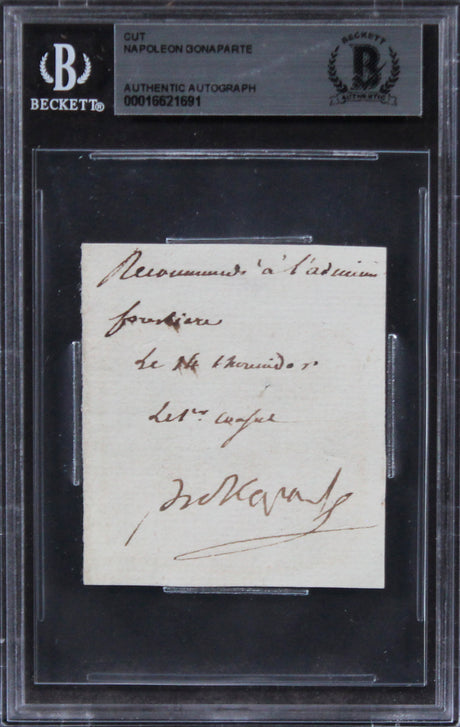 CUT
NAPOLEON BONAPARTE
AUTHENTIC AUTOGRAPH
00016621691
B
BECKETT®
BECKETT
B
AUTHENTIC
Recommandé à l'admini
forestiere
Le 14 thermidor
Le 1er consul
Bonaparte